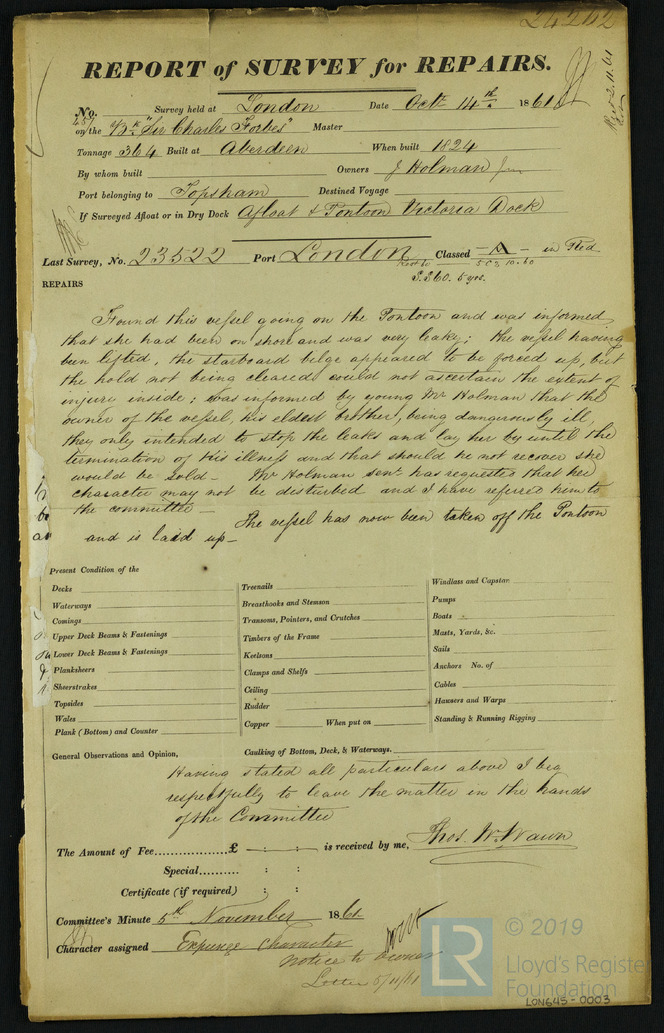 24242
REPORT of SURVEY for REPAIRS.
No. Survey held at London Date Octr 14th 1861
on the Bk "Sir Charles Forbes" Master
Tonnage 364 Built at Aberdeen When built 1824
By whom built Owners J Holman Jun
Port belonging to Topsham Destined Voyage
If Surveyed Afloat or in Dry Dock Afloat & Pontoon Victoria Dock
Last Survey, No. 23522 Port London Classed A in Red
5 yrs.
REPAIRS
Found this vessel going on the Pontoon and was informed
that she had been on shore and was very leaky; the vessel having
been lifted, the starboard bilge appeared to be forced up, but
the hold not being cleared could not ascertain the extent of
injury inside; was informed by young Mr Holman that the
owner of the vessel, his eldest brother, being dangerously ill,
they only intended to stop the leaks and lay her by until the
termination of his illness and that should he not recover she
would be sold - Mr Holman senr has requested that her
character may not be disturbed and I have referred him to
the committee -
The vessel has now been taken off the Pontoon
and is laid up -
Present Condition of the
Decks
Waterways
Comings
Upper Deck Beams & Fastenings
Lower Deck Beams & Fastenings
Planksheers
Sheerstrakes
Topsides
Wales
Plank (Bottom) and Counter
Treenails
Breasthooks and Stemson
Transoms, Pointers, and Crutches
Timbers of the Frame
Keelsons
Clamps and Shelfs
Ceiling
Rudder
Copper When put on
Windlass and Capstan
Pumps
Boats
Masts, Yards, &c.
Sails
Anchors No. of
Cables
Hawsers and Warps
Standing & Running Rigging
General Observations and Opinion, Caulking of Bottom, Deck, & Waterways.
Having stated all particulars above I beg
respectfully to leave the matter in the hands
of the Committee
The Amount of Fee................£ - : - : - is received by me, Thos. W. Wawn
Special.......... : :
Certificate (if required) : :
Committee's Minute 5th November 1861
Character assigned Expunge Character
Notice to owner
Letter 5/11/61
LR
© 2019
Lloyd's Register
Foundation
LON645-0003